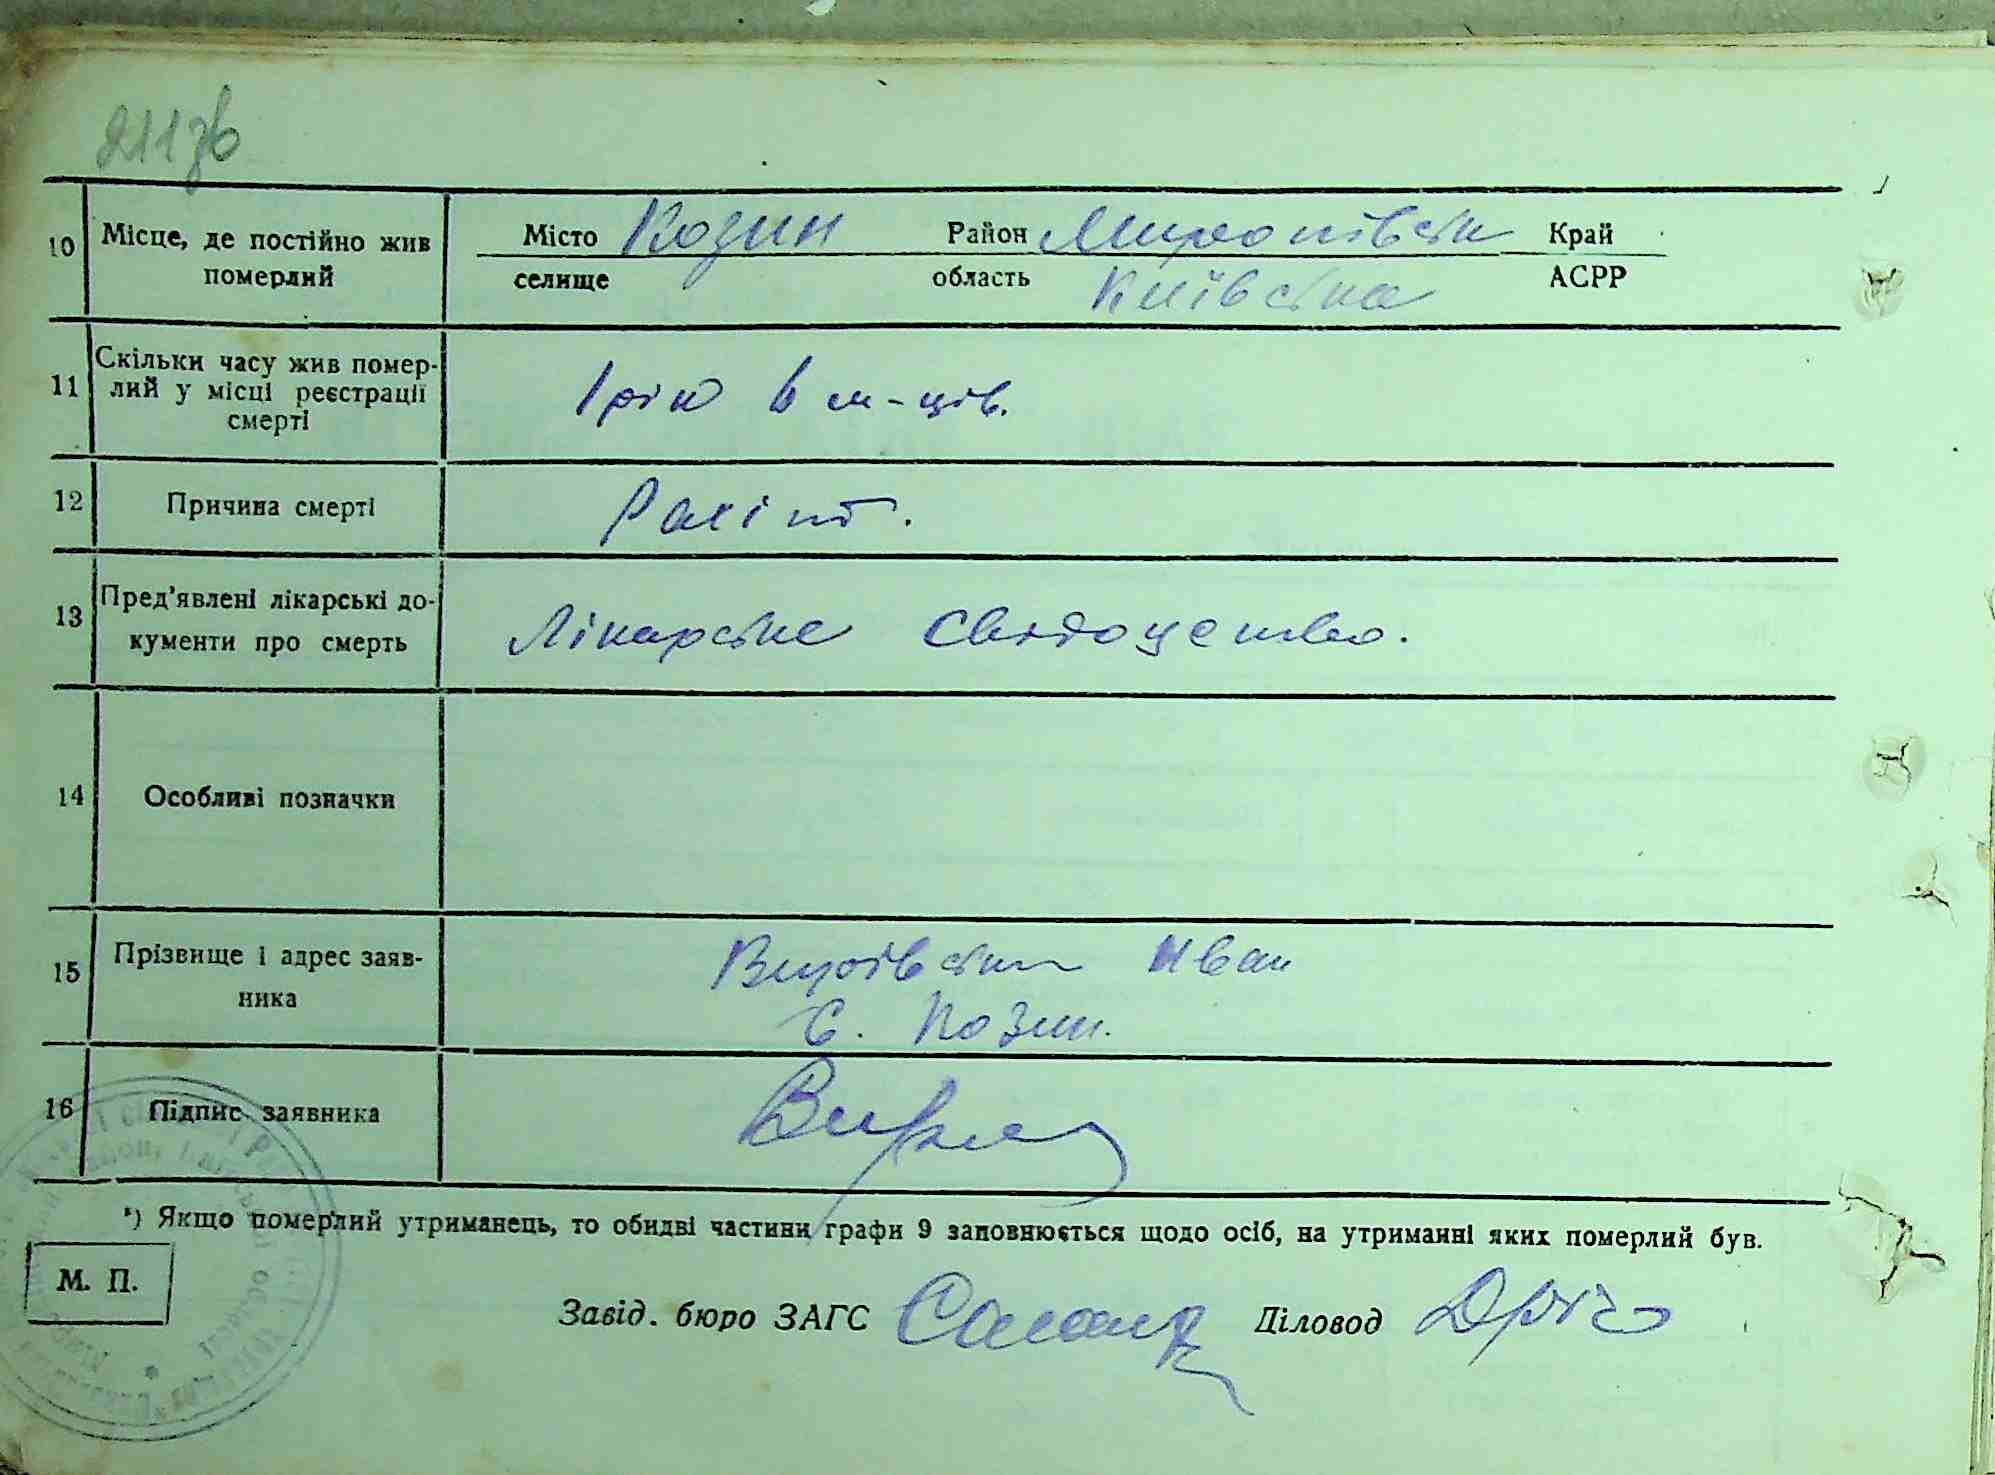 211зв
10 Місце, де постійно жив померлий
Місто Козин Район Миронівськ Край
селище область Київська АСРР
11 Скільки часу жив помер-
лий у місці реєстрації
смерті
1 рік 6 м-ців.
12 Причина смерті Рахіт.
13 Пред'явлені лікарські до-
кументи про смерть
Лікарське свідоцтво.
14 Особливі позначки
15 Прізвище і адрес заяв-
ника
Иван
С. Козин.
16 Підпис заявника
*) Якщо померлий утриманець, то обидві частини графи 9 заповнюється щодо осіб, на утриманні яких померлий був.
М. П.
Завід. бюро ЗАГС Діловод